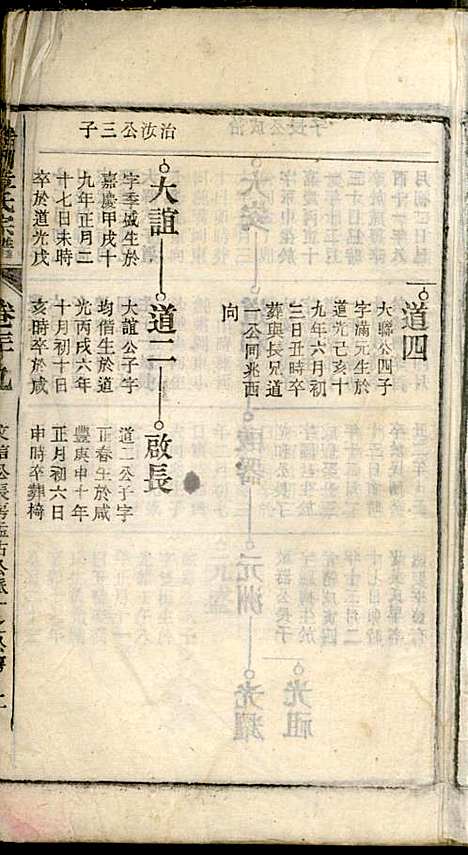 治汝公三子
道四
大公四子
字滿元生於
道光己亥十
九年六月初
三日丑時卒
葬與長兄道
一公同兆西
向
大誼
字季城生於
嘉慶甲戌十
九年正月二
十七日未時
卒於道光戊
道二
大誼公子字
均偕生於道
光丙戌六年
十月初十日
亥時卒於咸
啟長
道二公子字
正春生於咸
豐庚申十年
正月初六日
申時卒葬椅
氏宗譜